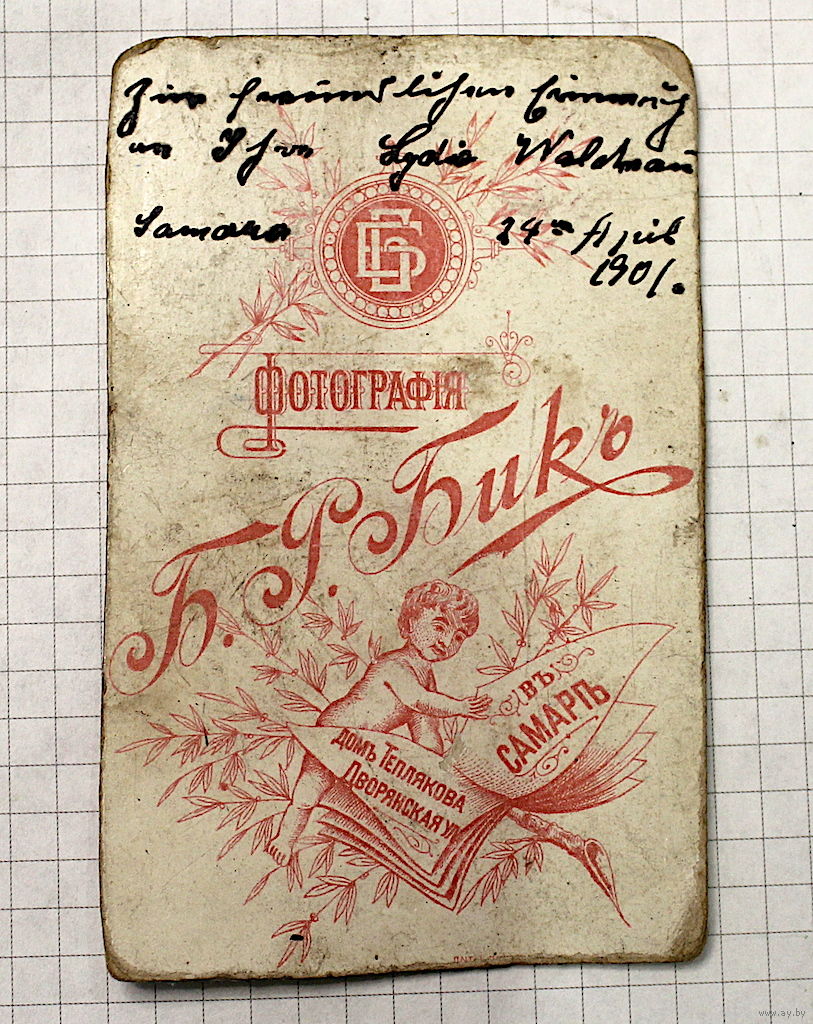 Zur freundlichen Erinnerung
an Ihre Lydia Waldtrau
Samara 24ten April
1901.
ББ
ФОТОГРАФІЯ
Б. Р. Бикъ
ВЪ
САМАРѢ
ДОМЪ ТЕПЛЯКОВА
ДВОРЯНСКАЯ УЛ
www.ay.by